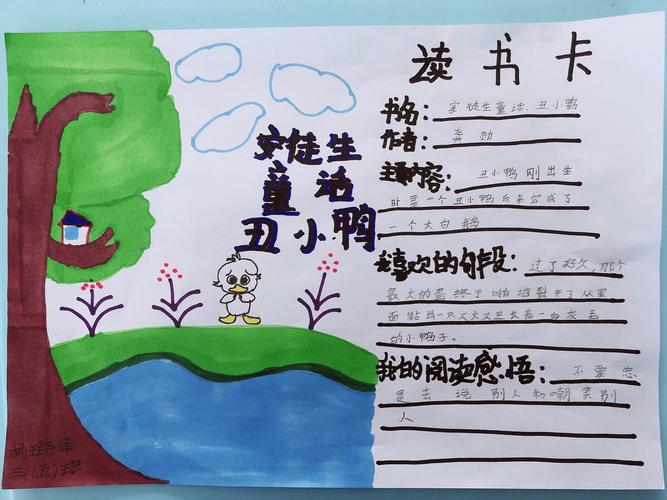 安徒生
童话
丑小鸭
读书卡
书名：安徒生童话.丑小鸭
作者：龚勋
主要内容：丑小鸭刚出生
时是一个丑小鸭后来变成了
一个大白鹅
我喜欢的句段：过了好久,那个
最大的蛋终于啪地裂开了从里
面钻出一只又大又丑长着一身灰毛
的小鸭子。
我的阅读感悟：不要总
是去说别人和嘲笑别
人
杨璐泽
三（五）班